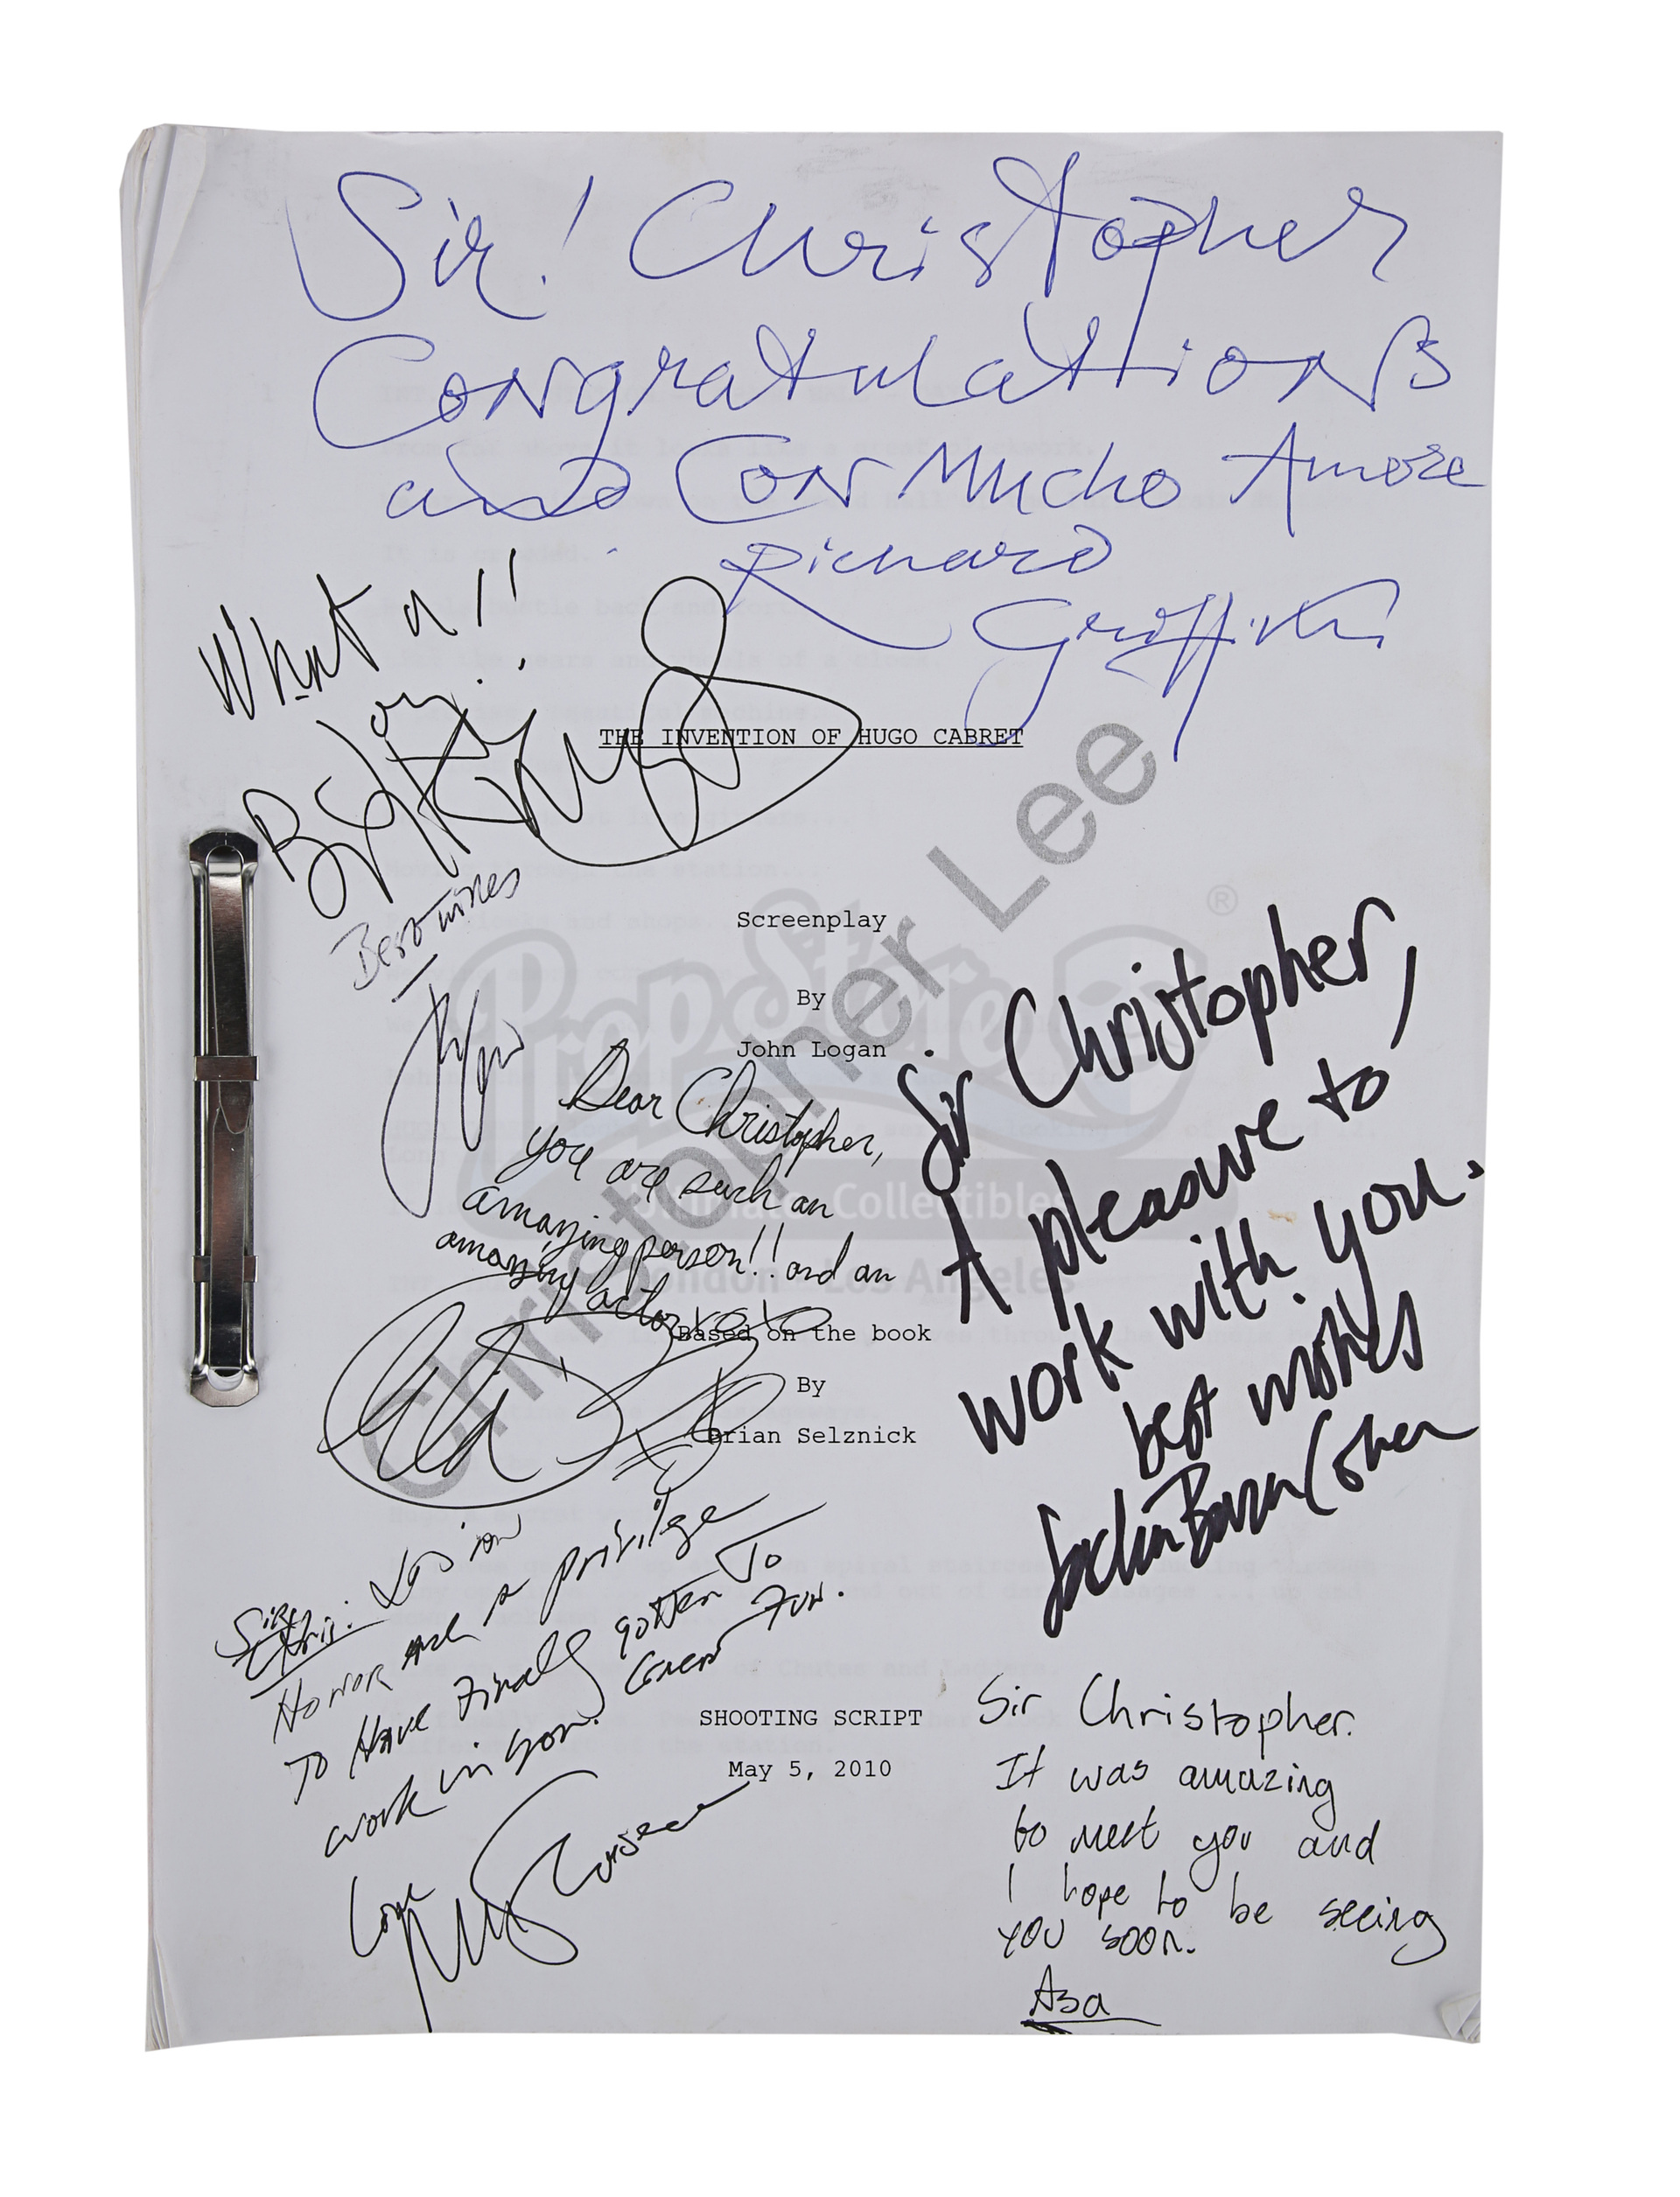 Sir! Christopher
Congratulations
and Con Mucho Amore
Richard
Griffiths
What a!!
Joy!
Ben Kingsley
THE INVENTION OF HUGO CABRET
Best wishes
Screenplay
By
John Logan
Christopher Lee
PropStore®
Ultimate Collectibles
London - Los Angeles
Dear Christopher,
you are such an
amazing person!! and an
amazing actor xoxo
Sir Christopher,
A pleasure to
work with you.
best wishes
Sacha Baron Cohen
Based on the book
By
Brian Selznick
Sir
Chris:
Honor and a privilege
To Have finally gotten To
work w you. Great Fun.
Love
Martin Scorsese
SHOOTING SCRIPT
May 5, 2010
Sir Christopher.
It was amazing
to meet you and
I hope to be seeing
you soon.
Asa